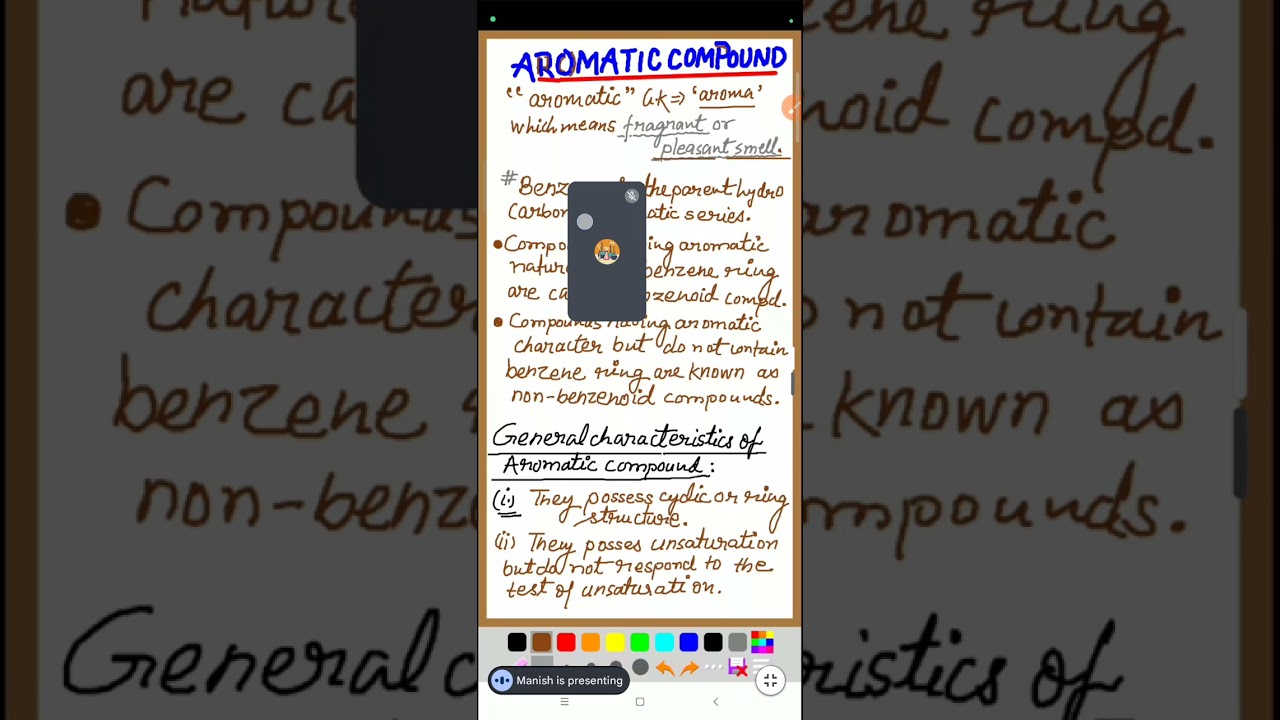 AROMATIC COMPOUND
“aromatic” G.K⇒ ‘aroma’
which means fragrant or
pleasant smell.
# the parent hydro
series.
aromatic
benzene ring
are compd.
• Compounds having aromatic
character but do not contain
benzene ring are known as
non-benzenoid compounds.
General characteristics of
Aromatic compound:
(i.) They possess cyclic or ring
structure.
(ii) They posses unsaturation
but do not respond to the
test of unsaturation.
Manish is presenting